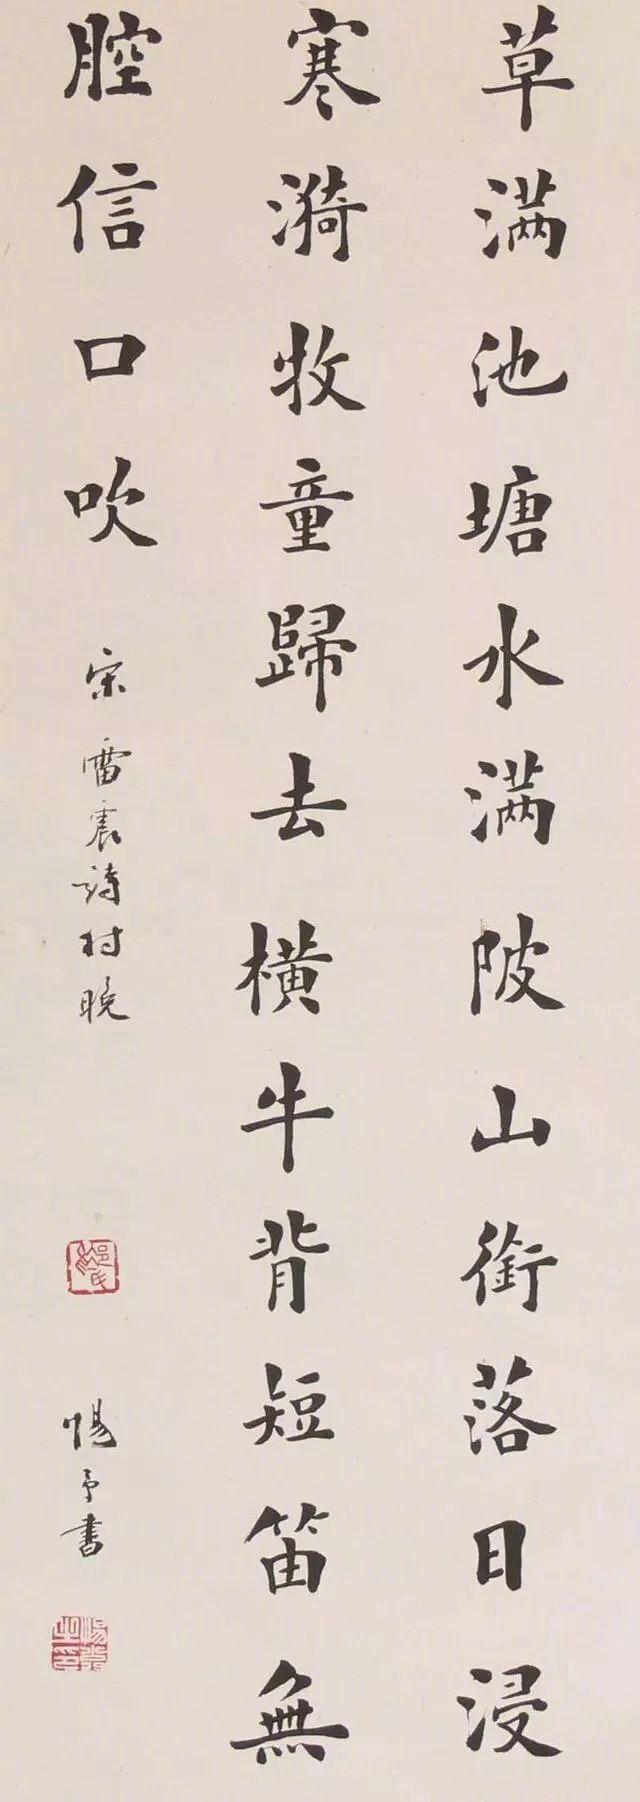 草满池塘水满陂山銜落日浸
寒漪牧童歸去橫牛背短笛無
腔信口吹 宋 雷震詩村晚
惕予書